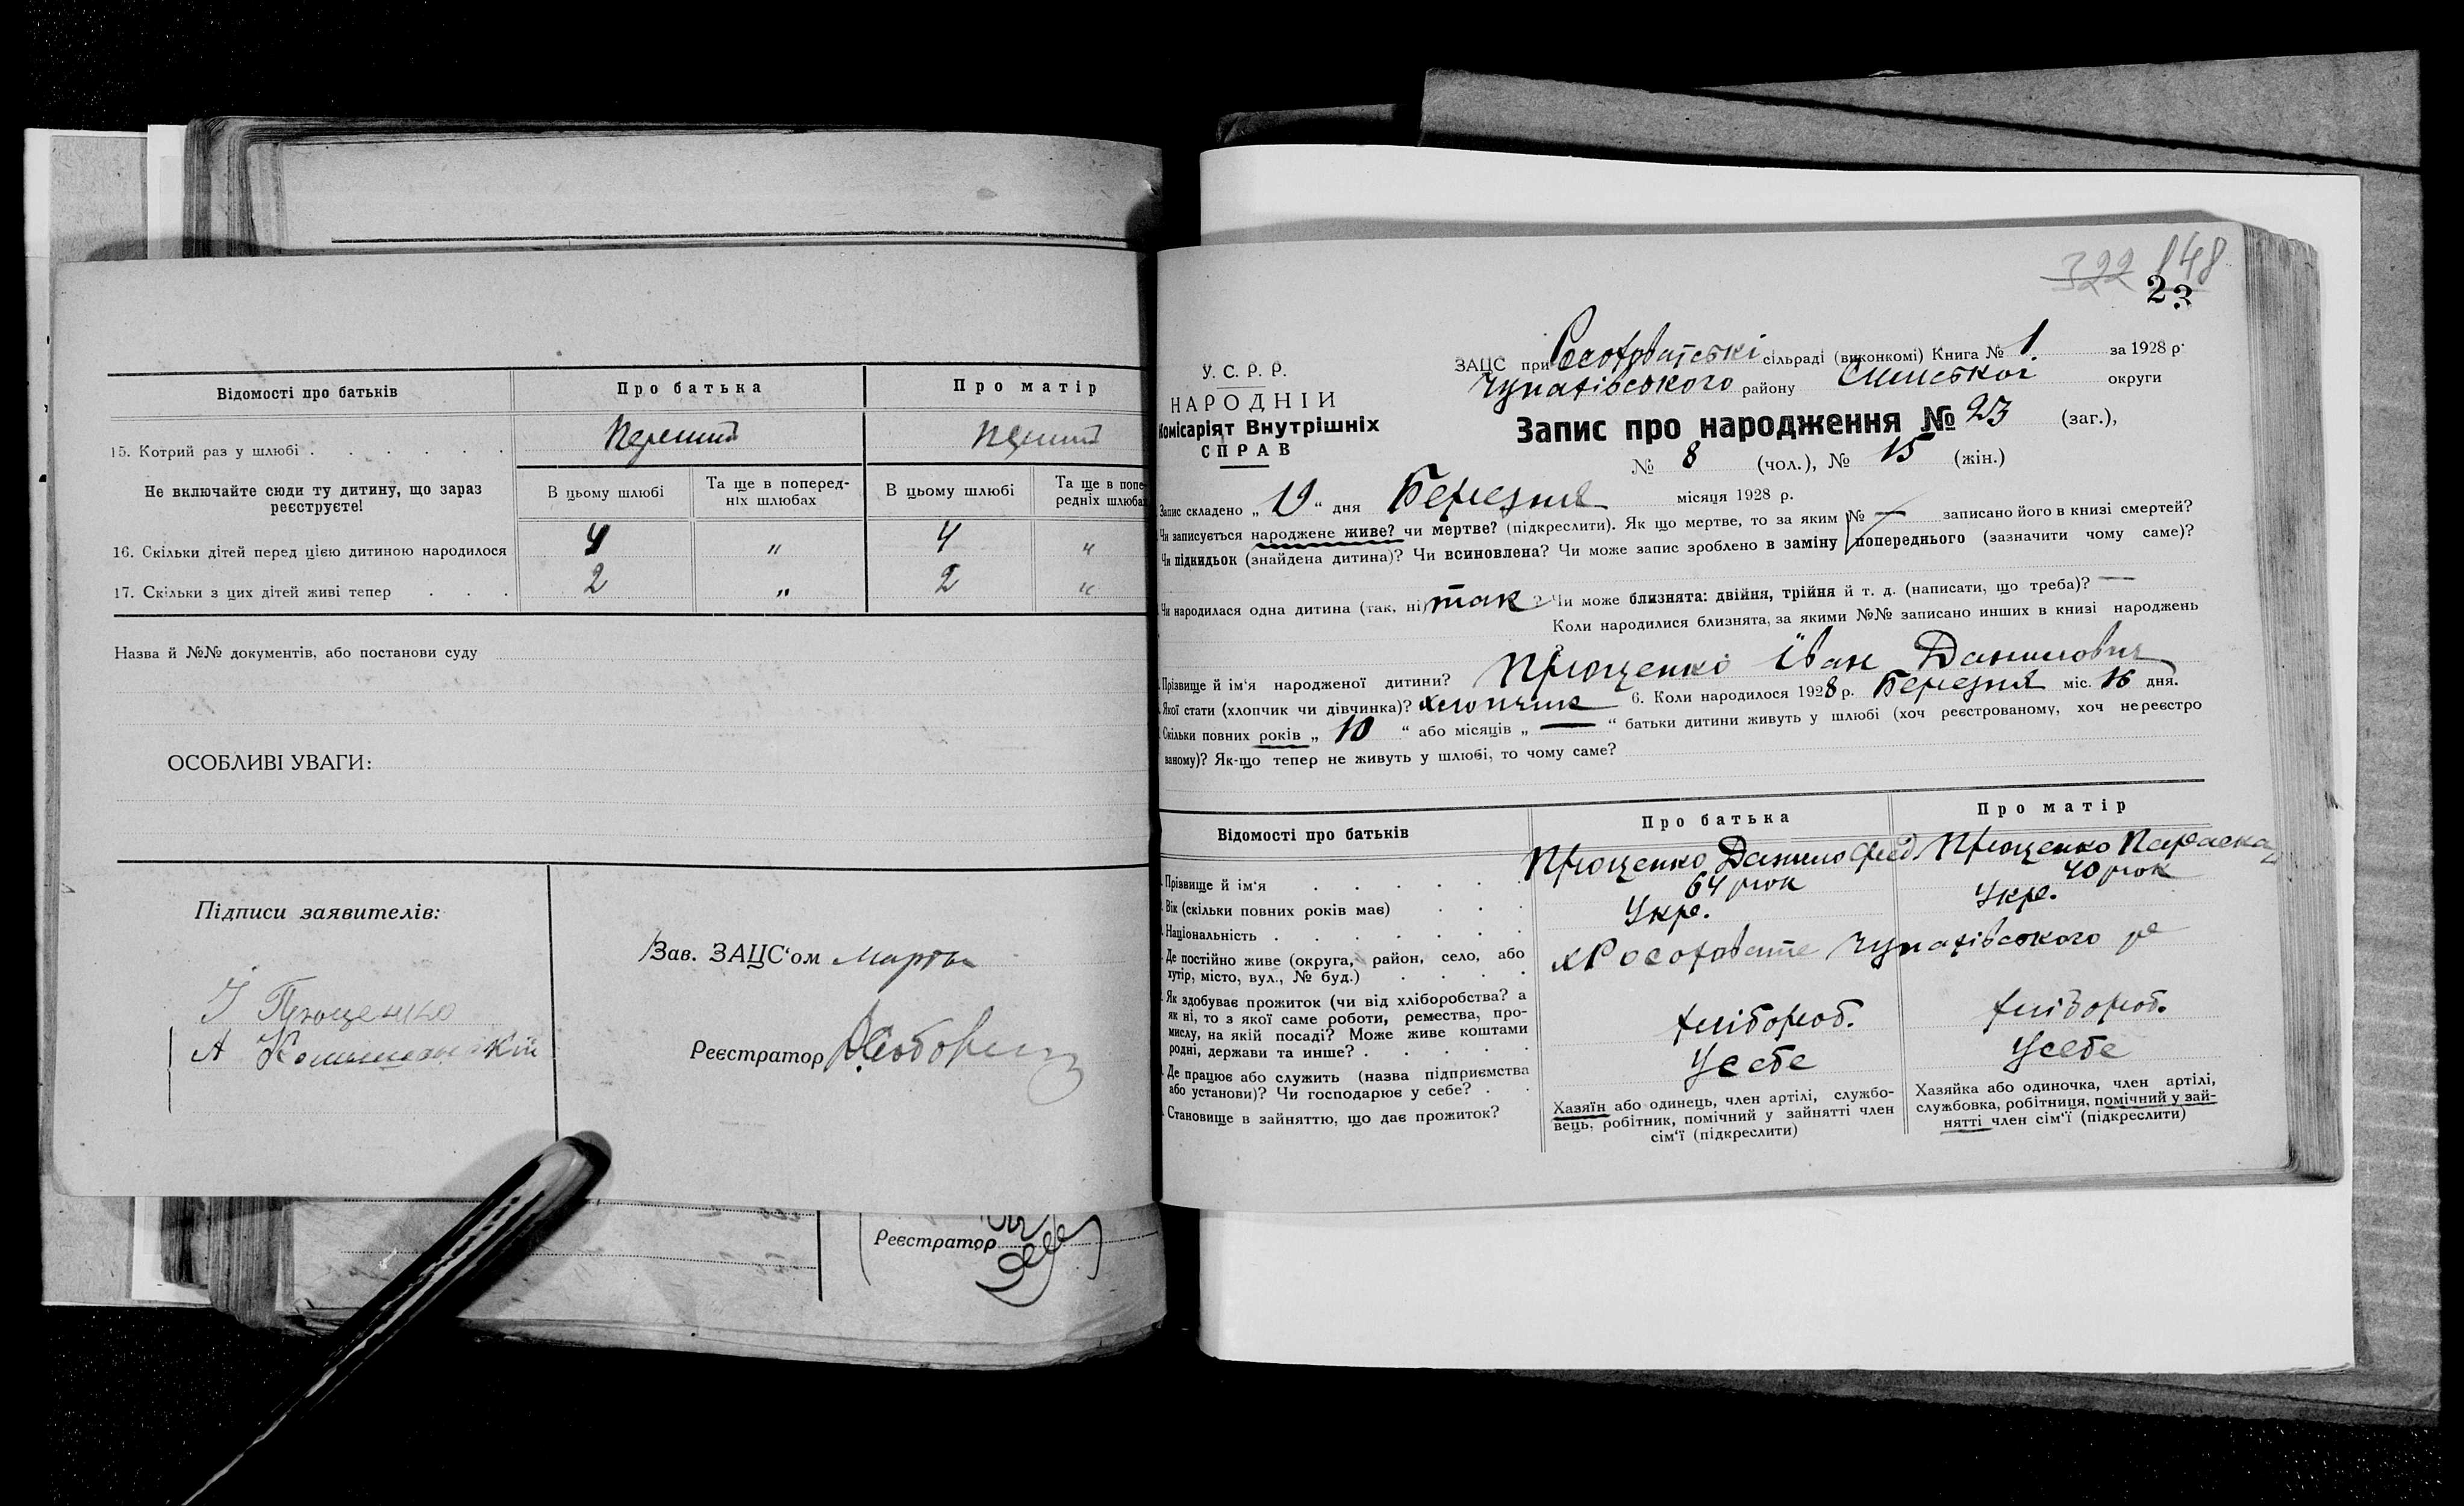 Відомості про батьків Про батька Про матір
15. Котрий раз у шлюбі
Не включайте сюди ту дитину, що зараз реєструєте!
В цьому шлюбі Та ще в поперед-ніх шлюбах В цьому шлюбі Та ще в попе-редніх шлюбах
16. Скільки дітей перед цією дитиною народилося 4 " 4 "
17. Скільки з цих дітей живі тепер 2 " 2 "
Назва й №№ документів, або постанови суду
ОСОБЛИВІ УВАГИ:
Підписи заявителів:
Зав. ЗАЦС'ом
Реєстратор
Реєстратор
322 148
23
У. С. Р. Р.
НАРОДНІЙ
Комісаріят Внутрішніх
СПРАВ
ЗАЦС при сільраді (виконкомі) Книга № 1. за 1928 р.
району округи
Запис про народження № 23 (заг.),
№ 8 (чол.), № 15 (жін.)
Запис складено „ 19 “ дня Березня місяця 1928 р.
Чи записується народжене живе? чи мертве? (підкреслити). Як що мертве, то за яким № — записано його в книзі смертей?
Чи підкидьок (знайдена дитина)? Чи всиновлена? Чи може запис зроблено в заміну попереднього (зазначити чому саме)?
Чи народилася одна дитина (так, ні) так ? Чи може близнята: двійня, трійня й т. д. (написати, що треба)? —
Коли народилися близнята, за якими №№ записано инших в книзі народжень
?
Прізвище й ім'я народженої дитини? Проценко Іван Данилович
Якої стати (хлопчик чи дівчинка)? хлопчик 6. Коли народилося 1928 р. Березня міс. 16 дня.
Скільки повних років „ 10 “ або місяців „ — “ батьки дитини живуть у шлюбі (хоч реєстрованому, хоч нереєстро
ваному)? Як-що тепер не живуть у шлюбі, то чому саме?
Відомості про батьків Про батька Про матір
Прізвище й ім'я Проценко Данило Проценко Параска
Вік (скільки повних років має) 64 рок 40 рок
Національність Укр. Укр.
Де постійно живе (округа, район, село, або
хутір, місто, вул., № буд.)
Як здобуває прожиток (чи від хліборобства? а
як ні, то з якої саме роботи, ремества, про-
мислу, на якій посаді? Може живе коштами
родні, держави та инше? хлібороб. хлібороб.
Де працює або служить (назва підприємства
або установи)? Чи господарює у себе? У себе У себе
Становище в зайняттю, що дає прожиток?
Хазяїн або одинець, член артілі, службо-
вець, робітник, помічний у зайнятті член
сім'ї (підкреслити)
Хазяйка або одиночка, член артілі,
службовка, робітниця, помічний у зай-
нятті член сім'ї (підкреслити)